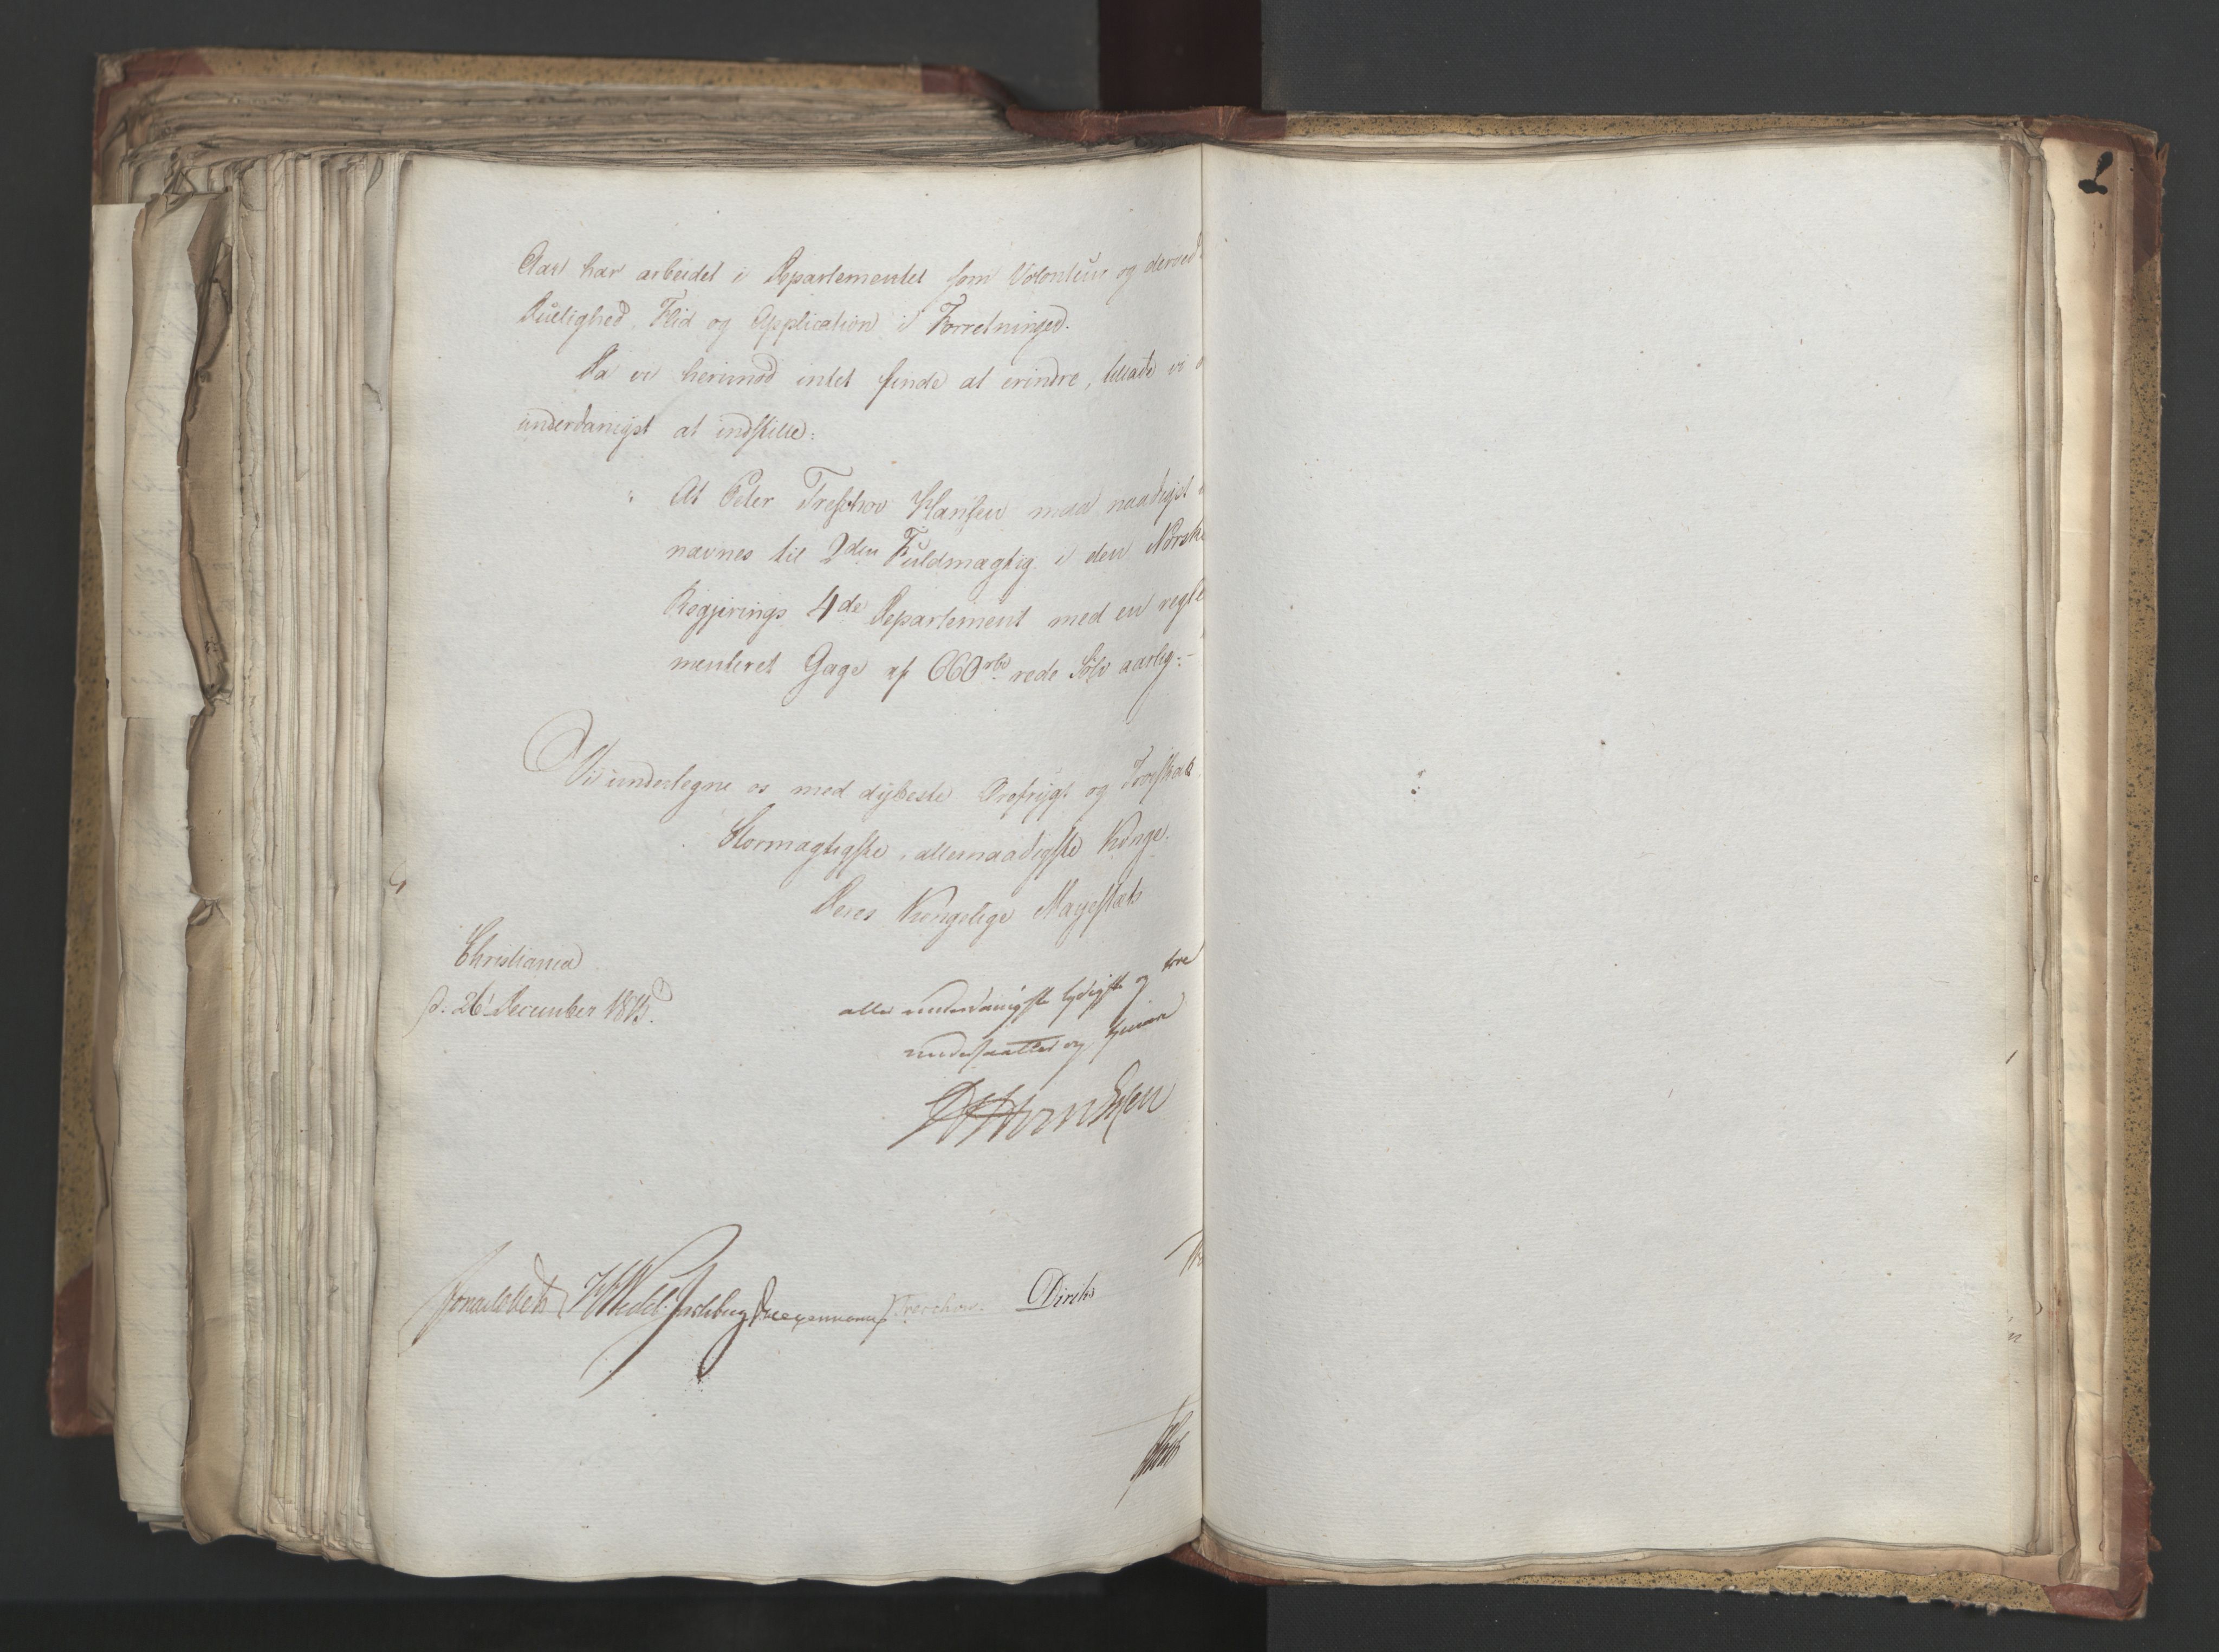 Aar har arbeidet i Departementet som Volonteur og derved
Duelighed, Flid og Application i Forretninger.
Da vi herimod intet finde at erindre, tillade vi
underdanigst at indstille:
At Peter Treschow Hansen maa naadigst
nævnes til 2den Fuldmægtig i den Norske
Regjerings 4de Departement med en regle
menteret Gage af 660 rbd. rede Sølv aarlig.
Vi undertegne os med dybeste Ærefrygt og Troskab
Stormægtigste, allernaadigste Konge.
Deres Kongelige Mayestæts
Christiania
d. 26 December 1815.
aller underdanigste lydigste og troe
undersaatter og tjenere
Sommerhielm Wedel Jarlsberg Treschow Diriks